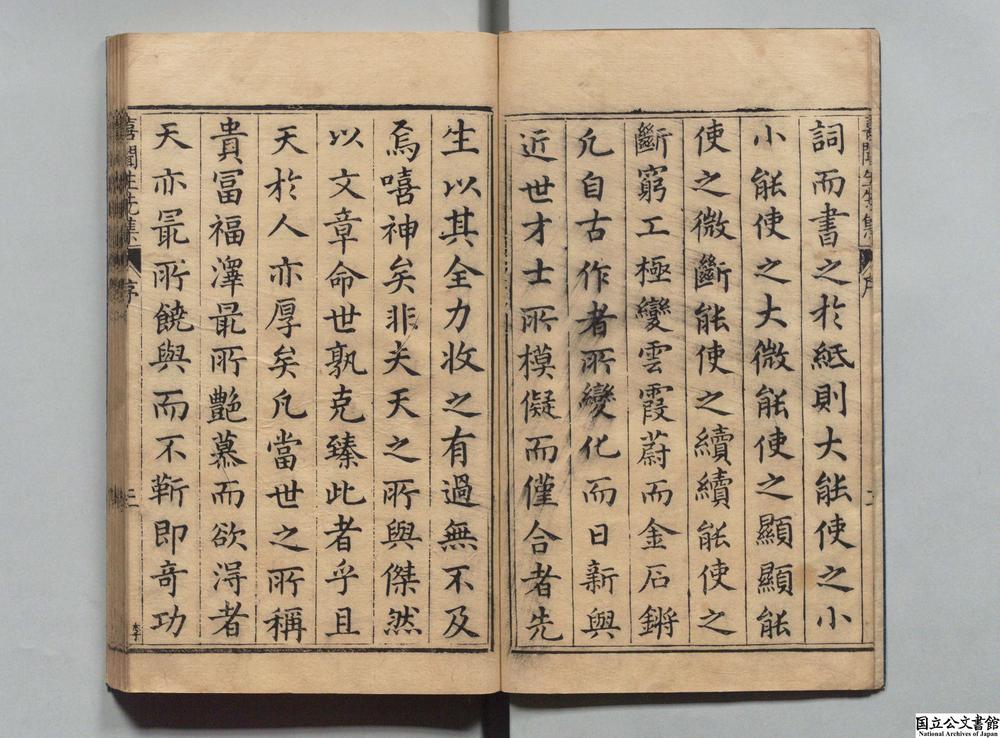 詞而書之於紙則大能使之小
小能使之大微能使之顯顯能
使之微斷能使之續續能使之
斷窮工極變雲霞蔚而金石鏘
凢自古作者所變化而日新與
近世才士所模儗而僅合者先
生以其全力收之有過無不及
焉嘻神矣非夫天之所與傑然
以文章命世孰克臻此者乎且
天於人亦厚矣凢當世之所稱
貴冨福澤最所艷慕而欲淂者
天亦最所饒與而不靳即奇功
喜聞先生集
序
三
李
国立公文書館
National Archives of Japan